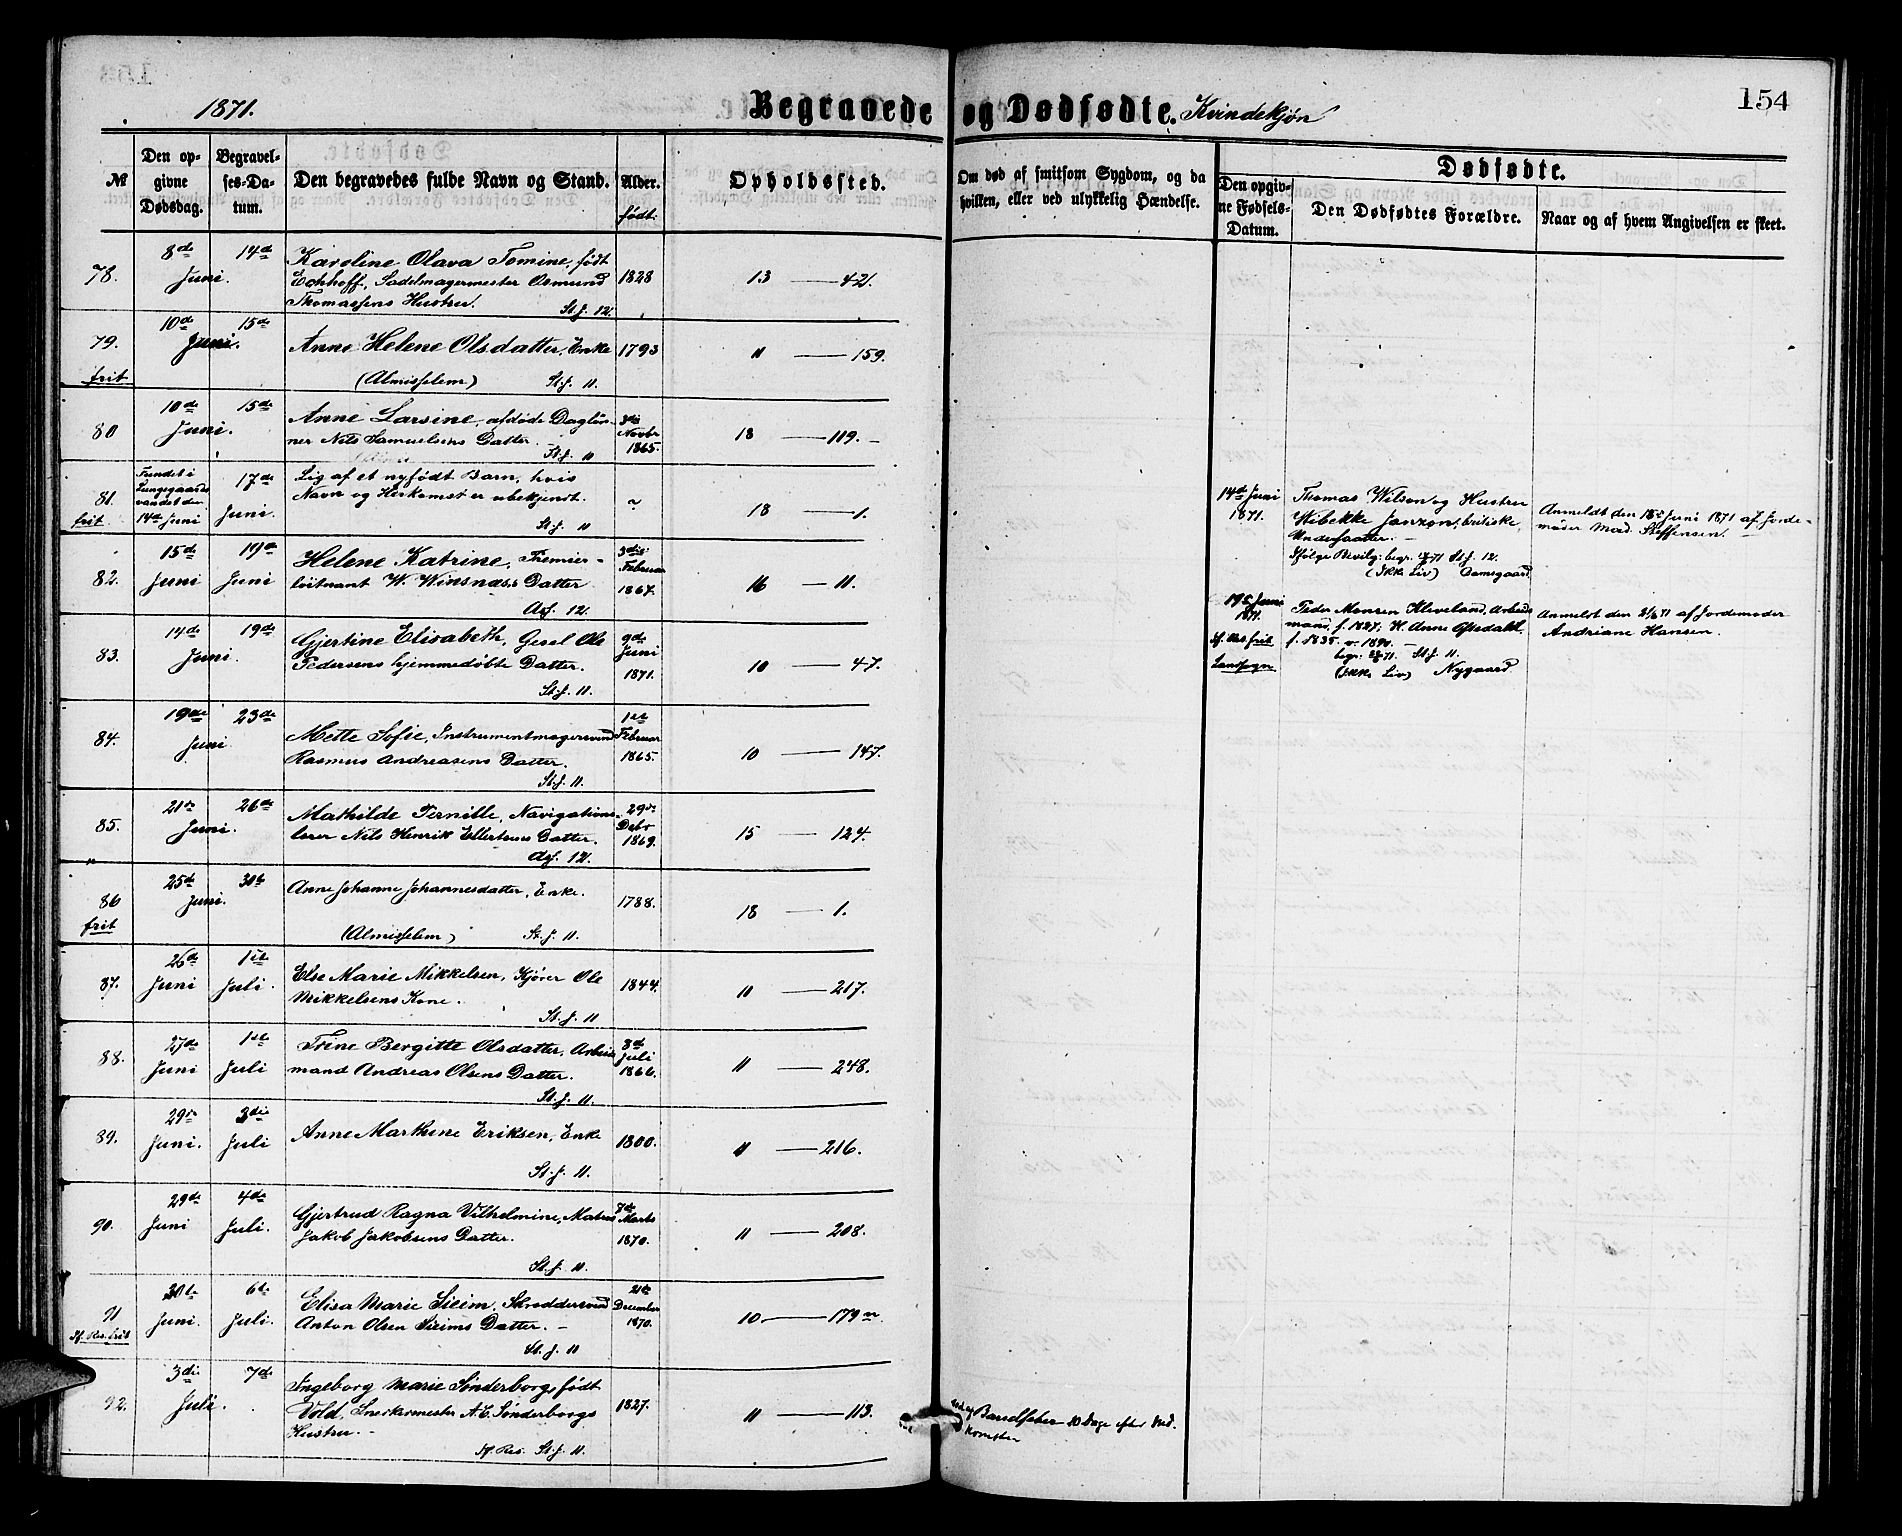 1871.
Begravede og Dødfødte. Kvindekjøn
154
№
Den opgivne Dødsdag.
Begravelses-Datum.
Den begravedes fulde Navn og Stand.
Alder.
født:
Opholdssted.
Om død af smitsom Sygdom, og da hvilken, eller ved ulykkelig Hændelse.
Dødfødte.
Den opgivne Fødsels-Datum.
Den Dødfødtes Forældre.
Naar og af hvem Angivelsen er skeet.
78. 8de Juni 14de
Karoline Olava Tomine, født
Echhoff, Sadelmagermester Osmund
Thomassens Hustru.
St. J. 12.
1828
13 — 42.
79. frit
10de Juni 15de
Anne Helene Olsdatter, Enke
(Almisselem) St. J. 11.
1793
11 — 159.
80
10de Juni 15de
Anne Larsine, afdøde Dagløn-
ner Nils Samuelsens Datter.
St. J. 11
3die Novbr 1865.
18 — 119.
81. frit
Fundet i
Lungegaards
vandet den
14de Juni
17de Juni
Lig af et nyfødt Barn, hvis
Navn og Herkomst er ubekjendt.
St. J. 11
18 — 1.
82.
15de Juni
19de Juni
Helene Katrine, Premier-
løitnant W. Winsnæs's Datter
As. 12.
3die Februar 1867.
16 — 11.
83.
14de Juni 19de
Gjertine Elisabeth, Gesel Ole
Pedersens hjemmedøbte Datter.
St. J. 11.
9de Juni 1871.
10 — 47.
84.
19de Juni 23de
Mette Sofie, Instrumentmagersvend
Rasmus Andreasens Datter.
St. J. 11.
1ste Februar 1865.
10 — 147.
85.
21de Juni 26de
Mathilde Pernille, Navigations-
lærer Nils Henrik Ellertsens Datter.
As. 12.
29de Debr 1869.
15 — 124.
86 frit
25de Juni 30te
Anne Johanne Johannesdatter, Enke.
(Almisselem) St. J. 11.
1788.
18 — 1.
87.
26de Juni
1ste Juli.
Else Marie Mikkelsen, Kjører Ole
Mikkelsens Kone.
St. J. 11
1844.
11 — 217.
88.
27de Juni
1ste Juli
Trine Bergitte Olsdatter, Arbeids
mand Andreas Olsens Datter.
St. J. 11.
8de Juli 1866.
11 — 248.
89.
29de Juni.
3die Juli
Anne Marthine Eriksen, Enke
St. J. 11.
1800.
11 — 216.
90.
29de Juni
4de Juli.
Gjertrud Ragna Vilhelmine, Matros
Jakob Jakobsens Datter.
St. J. 11.
7de Marts 1870.
11 — 208.
91
Sf. Res. frit
30te Juni.
6te Juli.
Elisa Marie Sieim, Skræddersvend
Anton Olsen Sieims Datter.
St. J. 11
21de December 1870.
10 — 179
92.
3die Juli. 7de
Ingeborg Marie Sønderborg, født
Vold, Snedkermester A. C. Sønderborgs
Hustru.
Sf. Res. St. J. 11.
1827.
11 — 113.
Barselfeber 10 Dage efter Ned-
komsten
14de Juni
1871.
Thomas Wilson og Hustru
Wibekke Janzon, britiske
Undersaatter.
Ifølge Bevilg: begr. St. J. 12.
(Ikke Liv) Damsgaard.
Anmeldt den 18de Juni 1871 af Jorde-
moder Mad. Steffensen.
19de Juni
1871.
Sf. Res. frit
Landsogn
Peder Monsen Kleveland, Arbeids
mand, f. 1827; H. Anne Ofsedahl
f. 1835.
begr: St. J. 11.
(Ikke Liv) Nygaard
Anmeldt den 21/6 71 af Jordemoder
Andriane Hansen.